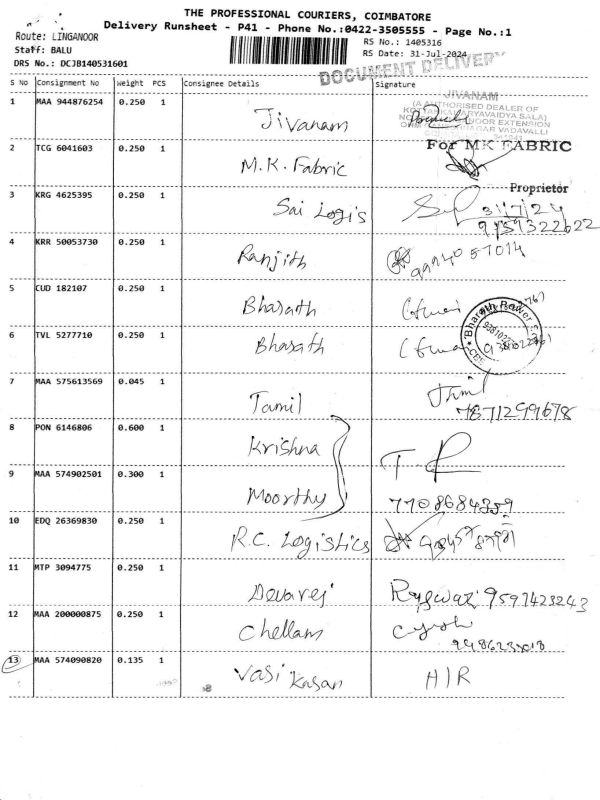 THE PROFESSIONAL COURIERS, COIMBATORE
Delivery Runsheet - P41 - Phone No.:0422-3505555 - Page No.:1
Route: LINGANOOR
RS No.: 1405316
Staff: BALU
RS Date: 31-Jul-2024
DRS No.: DCJB140531601
DOCUMENT DELIVERY
S No Consignment No Weight PCS Consignee Details Signature
1 MAA 944876254 0.250 1 Jivanam
JIVANAM
(AUTHORISED DEALER OF
2 TCG 6041603 0.250 1 M.K. Fabric
For MK FABRIC
Proprietor
3 KRG 4625395 0.250 1 Sai Logis 31/7/24
9159322622
4 KRR 50053730 0.250 1 Ranjith 99940 57014
5 CUD 182107 0.250 1 Bharath
6 TVL 5277710 0.250 1 Bharath
Bharath Power
CBE
7 MAA 575613569 0.045 1 Tamil
7871299678
8 PON 6146806 0.600 1 Krishna
9 MAA 574902501 0.300 1 Moorthy
7708684359
10 EDQ 26369830 0.250 1 R.C. Logistics
11 MTP 3094775 0.250 1 Devarej 9597423243
12 MAA 200000875 0.250 1 Chellam
13 MAA 574090820 0.135 1 Vasi Kasan H/R